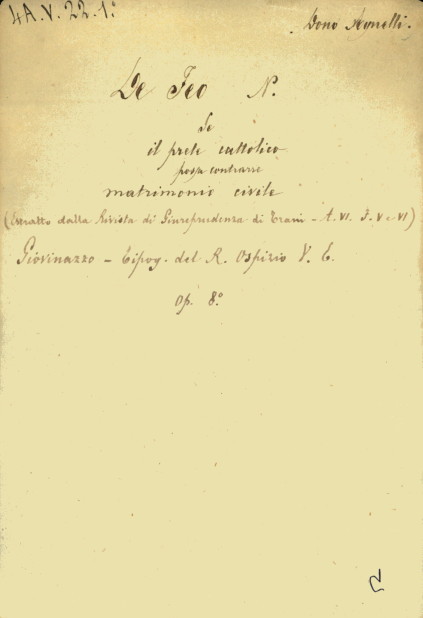 4A.V.22.1º
Dono Agnelli.
De Feo N.
Se
il prete cattolico
possa contrarre
matrimonio civile
(Estratto dalla Rivista di Giureprudenza di Trani - A. VI. F. V e VI)
Giovinazzo - Tipog. del R. Ospizio V. E.
Op. 8º